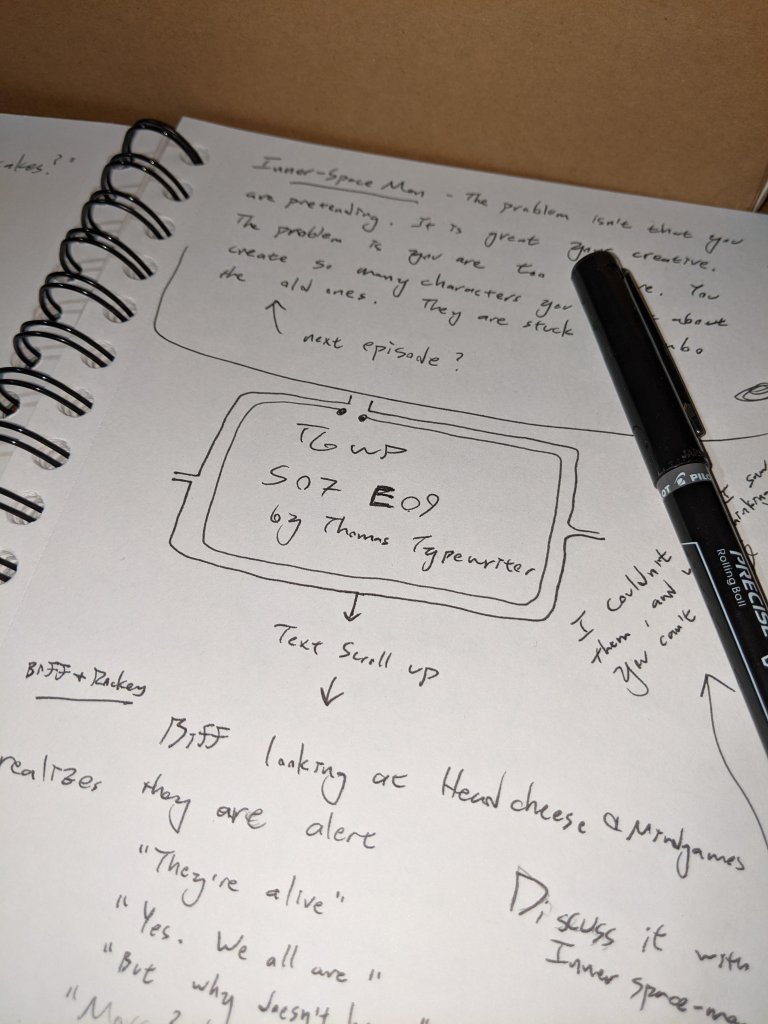 akes?"
Inner-Space Man - The problem isn't that you
are pretending. It is great your creative.
The problem is you are too re. You
create so many characters you about
the old ones. They are stuck mbo
next episode?
TGWP
S07 E09
by Thomas Typewriter
Text Scroll up
Biff + Rockey
Biff looking at Headcheese & Mindgames
realizes they are alert
"They're alive"
"Yes. We all are"
"But why doesn't
I couldn't
them, and
You can't
Discuss it with
Inner space-ma
PILOT
PRECISE V
Rolling Ball